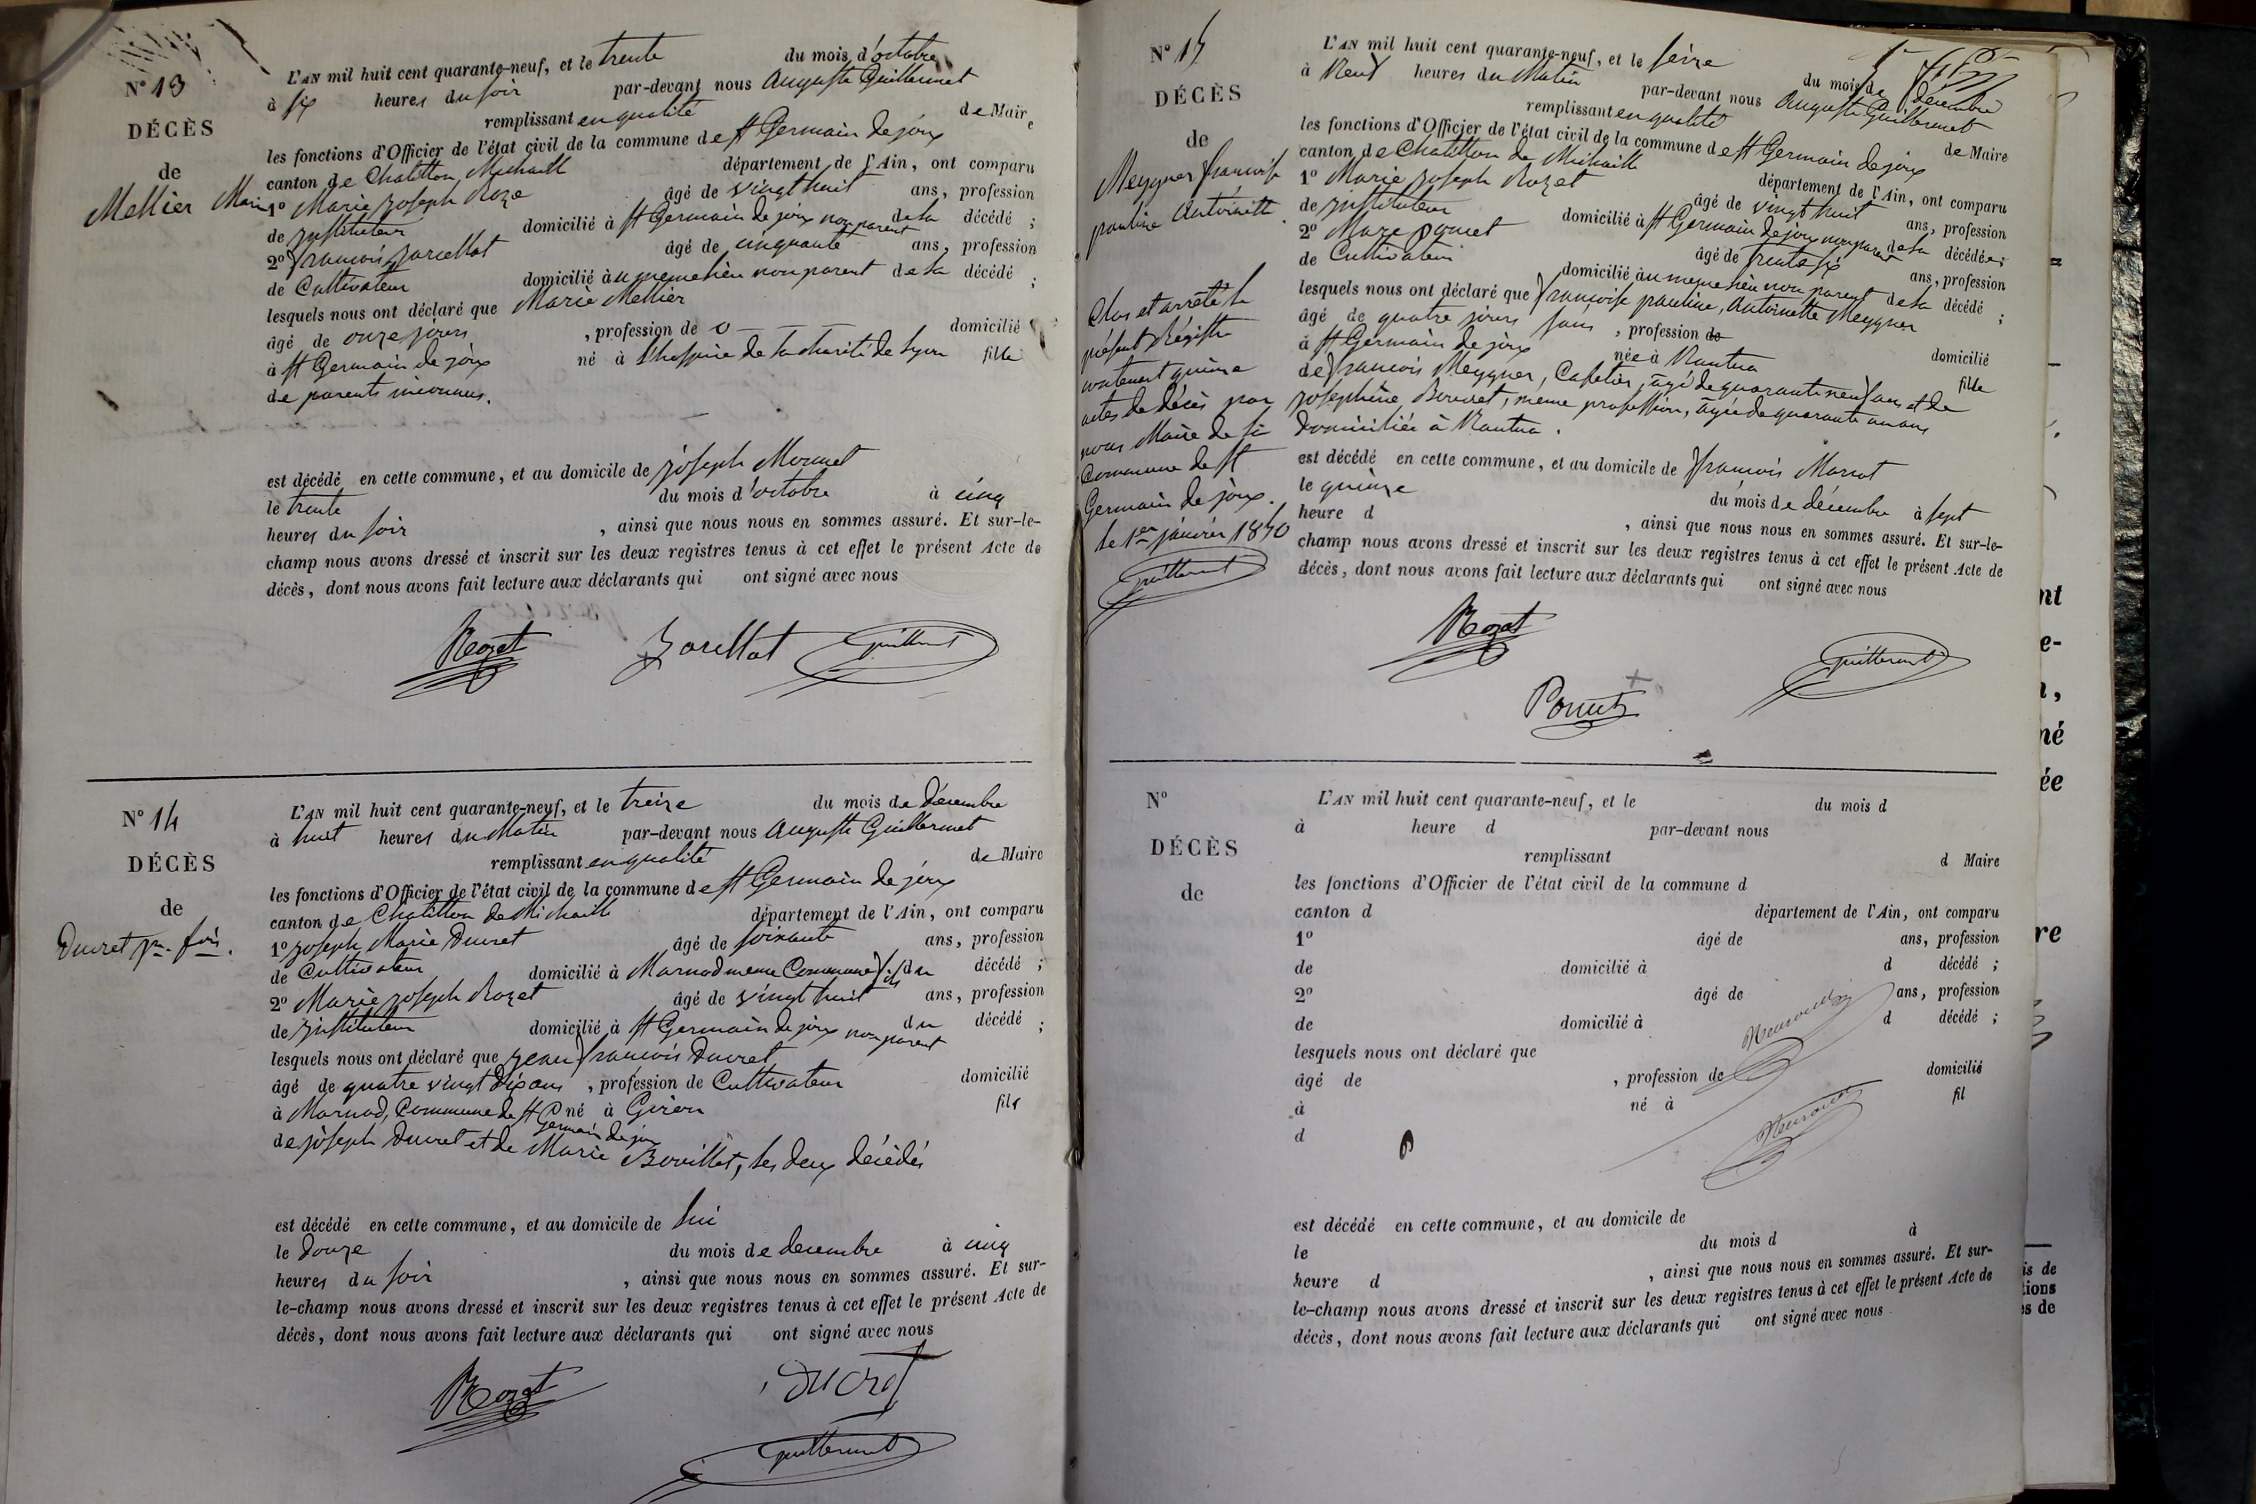 N° 13
DÉCÈS
de
Mellier Marie
L'AN mil huit cent quarante-neuf, et le trente du mois d'octobre
à six heures du soir par-devant nous Auguste Guillermet
remplissant en qualité de Maire
les fonctions d'Officier de l'état civil de la commune de St Germain de joux
canton de Chatillon Michaille département de l'Ain, ont comparu
1° Marie joseph Roze âgé de vingt huit ans, profession
de instituteur domicilié à St Germain de joux non parent de la décédé ;
2° françois âgé de cinquante ans, profession
de Cultivateur domicilié au meme lieu non parent de la décédé ;
lesquels nous ont déclaré que Marie Mellier
âgé de onze jours , profession de o domicilié
à St Germain de joux né à l'hospice de la charité de Lyon fille
de parents inconnus.
est décédé en cette commune, et au domicile de joseph
le trente du mois d'octobre à cinq
heures du soir , ainsi que nous nous en sommes assuré. Et sur-le-
champ nous avons dressé et inscrit sur les deux registres tenus à cet effet le présent Acte de
décès, dont nous avons fait lecture aux déclarants qui ont signé avec nous
Rozet Guillermet
N° 14
DÉCÈS
de
Ducret jn. fois.
L'AN mil huit cent quarante-neuf, et le treize du mois de Décembre
à huit heures du Matin par-devant nous Auguste Guillermet
remplissant en qualité de Maire
les fonctions d'Officier de l'état civil de la commune de St Germain de joux
canton de Chatillon de Michaille département de l'Ain, ont comparu
1° joseph Marie Ducret âgé de soixante ans, profession
de Cultivateur domicilié à Marnod meme Commune fils du décédé ;
2° Marie joseph Rozet âgé de vingt huit ans, profession
de instituteur domicilié à St Germain de joux non parent du décédé ;
lesquels nous ont déclaré que jean françois Ducret
âgé de quatre vingt dix ans , profession de Cultivateur domicilié
à Marnod, Commune de St Germain de joux né à Giron fils
de joseph Ducret et de Marie Bouillet, les deux décédés
est décédé en cette commune, et au domicile de lui
le douze du mois de decembre à cinq
heures du soir , ainsi que nous nous en sommes assuré. Et sur-
le-champ nous avons dressé et inscrit sur les deux registres tenus à cet effet le présent Acte de
décès, dont nous avons fait lecture aux déclarants qui ont signé avec nous
Rozet Ducret
Guillermet
N° 15
DÉCÈS
de
Meygner françoise
pauline Antoinette
Clos et arrêté le
présent Régistre
contenant quinze
actes de décès par
nous Maire de la
Commune de St
Germain de joux.
le 1er janvier 1850
Guillermet
L'AN mil huit cent quarante-neuf, et le seize du mois de décembre
à Neuf heures du Matin par-devant nous Auguste Guillermet
remplissant en qualité de Maire
les fonctions d'Officier de l'état civil de la commune de St Germain de joux
canton de Chatillon de Michaille département de l'Ain, ont comparu
1° Marie joseph Rozet âgé de vingt huit ans, profession
de instituteur domicilié à St Germain de joux non parent de la décédée ;
2° Marc ponet âgé de trente six ans, profession
de Cultivateur domicilié au meme lieu non parent de la décédé ;
lesquels nous ont déclaré que françoise pauline, Antoinette Meygner
âgé de quatre jours sans , profession de domicilié
à St Germain de joux née à Nantua fille
de françois Meygner, Cafetier, âgé de quarante neuf ans et de
josephine Bouvet, meme profession, âgée de quarante un ans
domiciliés à Nantua.
est décédé en cette commune, et au domicile de françois
le quinze du mois de décembre à sept
heure d , ainsi que nous nous en sommes assuré. Et sur-le-
champ nous avons dressé et inscrit sur les deux registres tenus à cet effet le présent Acte de
décès, dont nous avons fait lecture aux déclarants qui ont signé avec nous
Rozet Guillermet
Ponet
N°
DÉCÈS
de
L'AN mil huit cent quarante-neuf, et le du mois d
à heure d par-devant nous
remplissant d Maire
les fonctions d'Officier de l'état civil de la commune d
canton d département de l'Ain, ont comparu
1° âgé de ans, profession
de domicilié à d décédé ;
2° âgé de ans, profession
de domicilié à d décédé ;
lesquels nous ont déclaré que
âgé de , profession de domicilié
à né à fil
d
est décédé en cette commune, et au domicile de
le du mois d à
heure d , ainsi que nous nous en sommes assuré. Et sur-
le-champ nous avons dressé et inscrit sur les deux registres tenus à cet effet le présent Acte de
décès, dont nous avons fait lecture aux déclarants qui ont signé avec nous